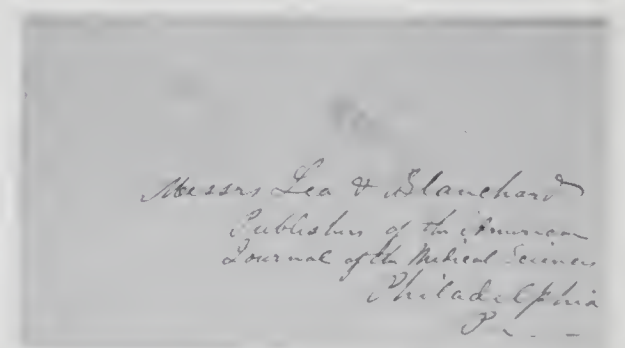 Messrs Lea & Blanchard
Publishers of the American
Journal of the Medical Sciences
Philadelphia
Pa.